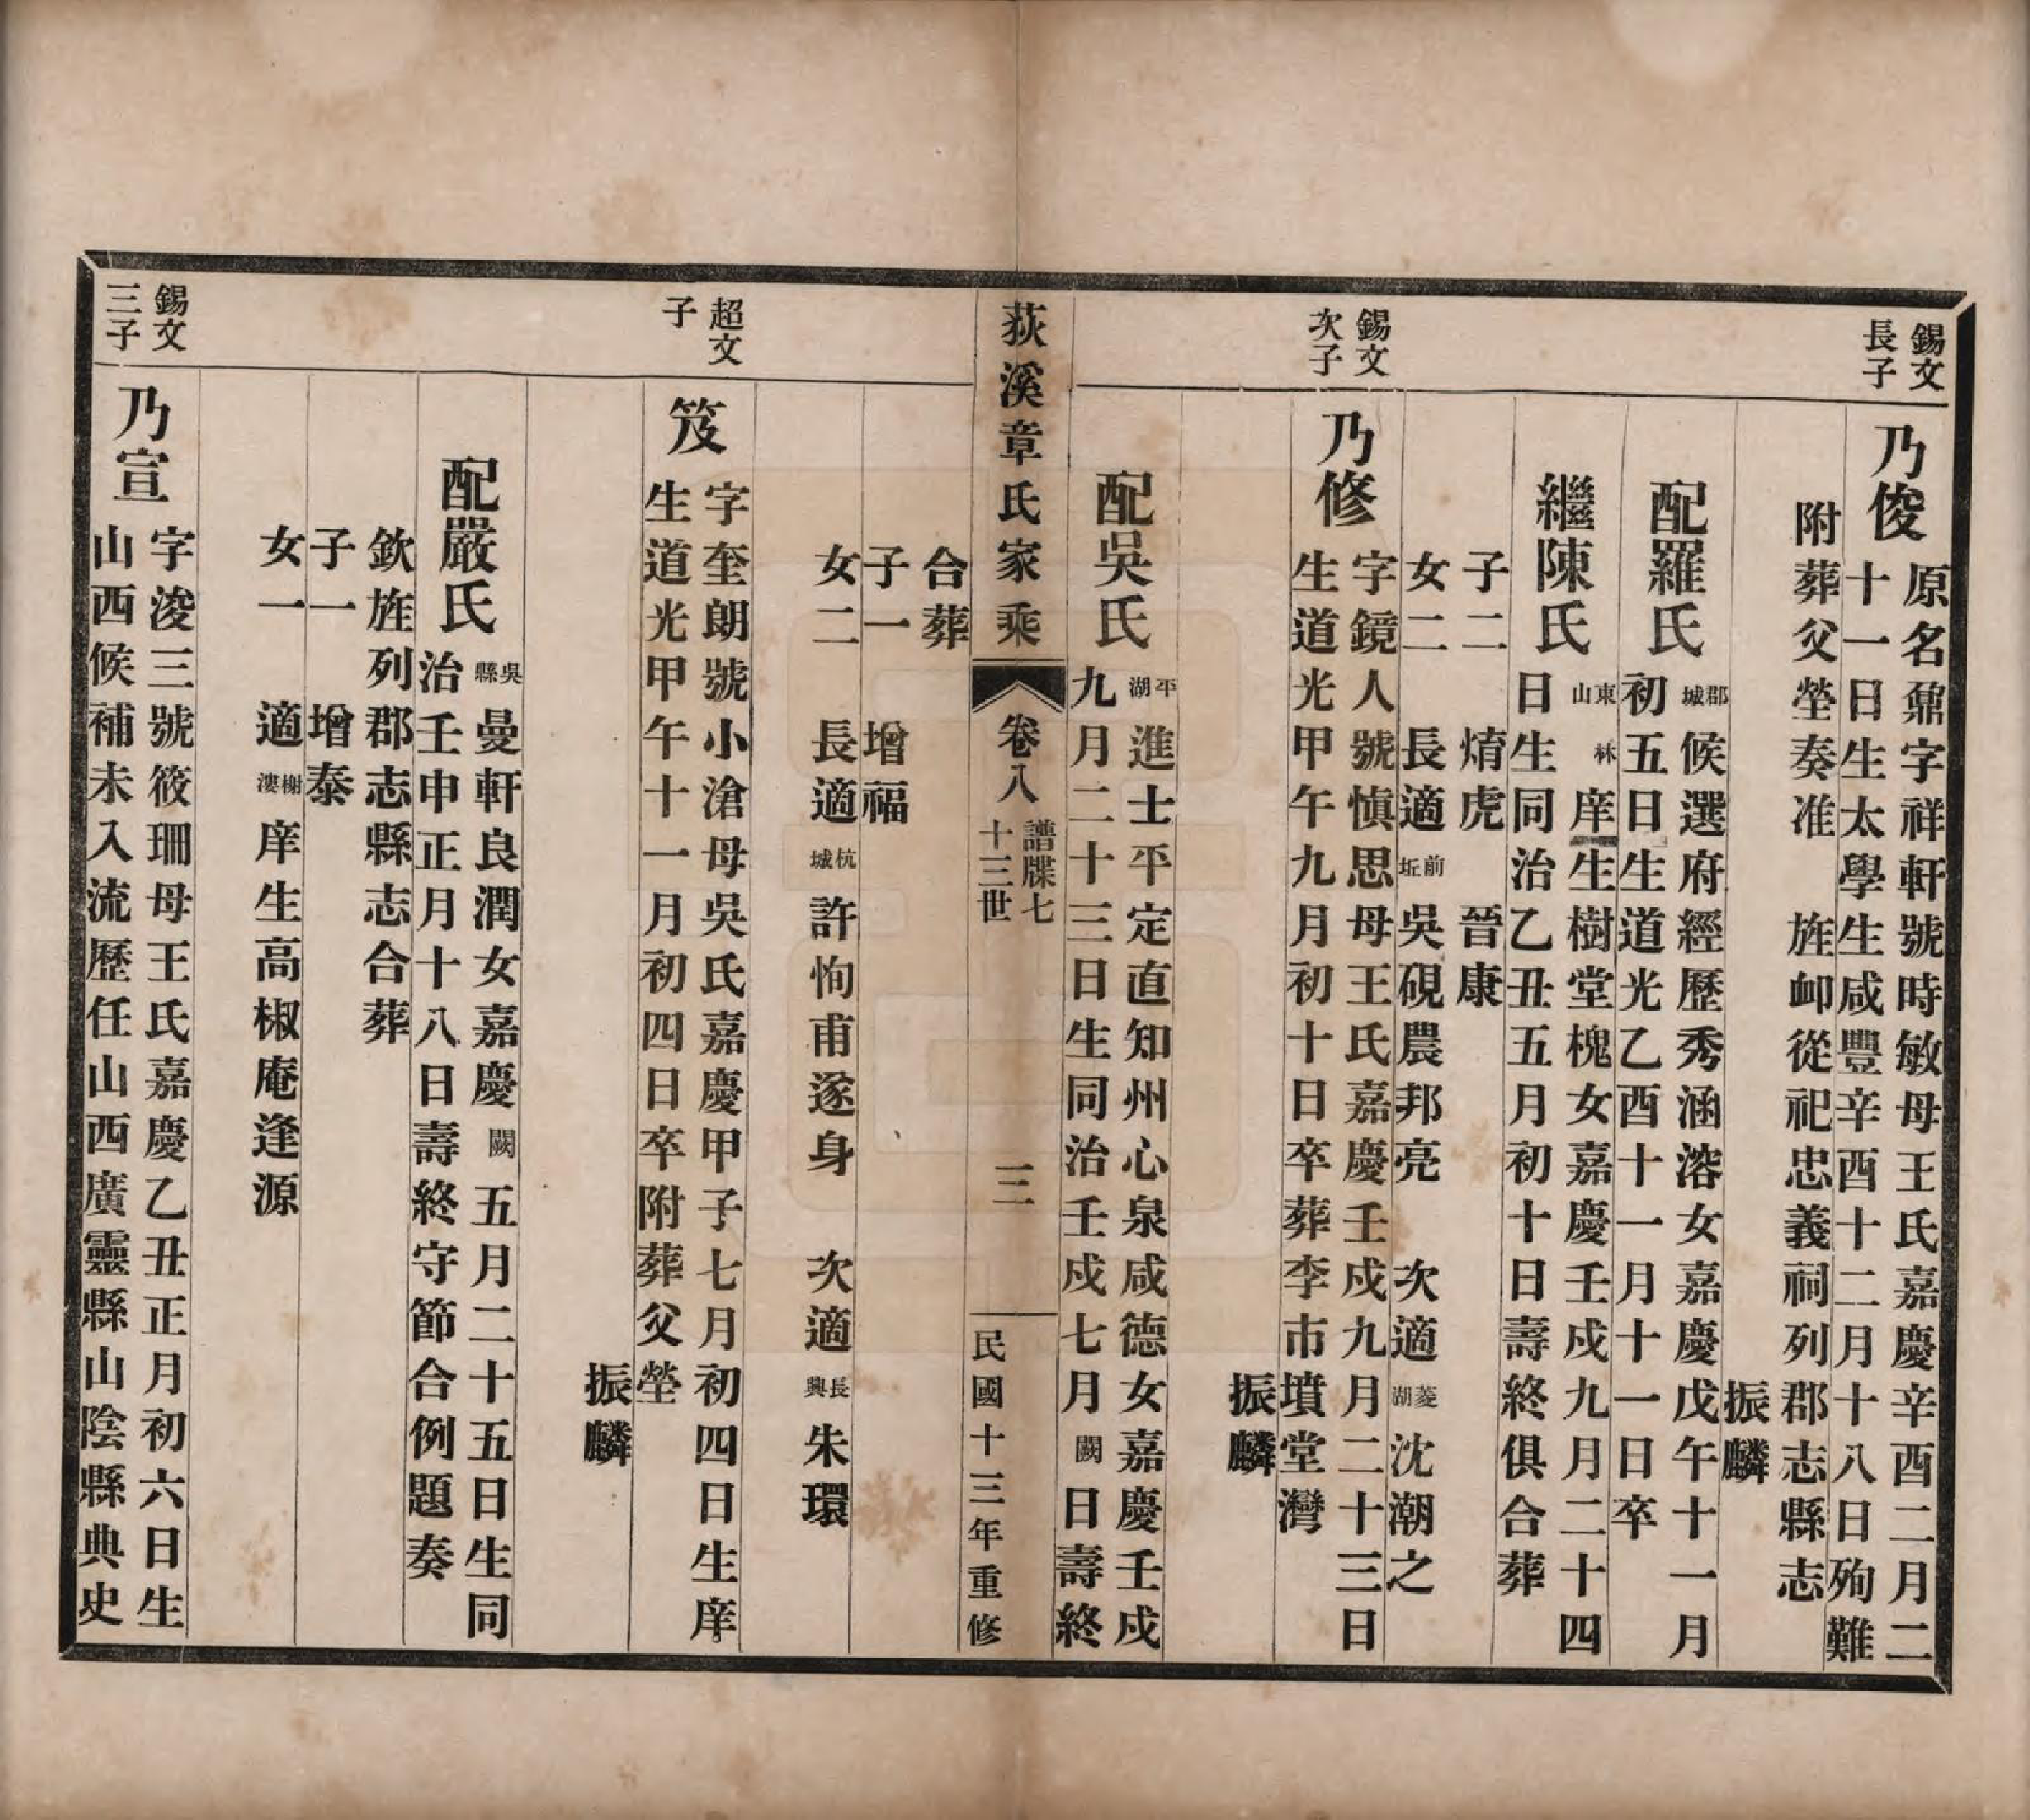 錫文
長子
乃俊
原名鼐字祥軒號時敏母王氏嘉慶辛酉二月二
十一日生太學生咸豐辛酉十二月十八日殉難
附葬父塋奏准 旌卹從祀忠義祠列郡志縣志
振麟
配羅氏
郡城
候選府經歷秀涵溶女嘉慶戊午十一月
初五日生道光乙酉十一月十一日卒
繼陳氏
東山
庠生樹堂槐女嘉慶壬戌九月二十四
日生同治乙丑五月初十日壽終俱合葬
子二 焴虎 晉康
女二 長適前坵吳硯農邦亮 次適菱湖沈潮之
錫文
次子
乃修
字鏡人號慎思母王氏嘉慶壬戌九月二十三日
生道光甲午九月初十日卒葬李市墳堂灣
振麟
配吳氏
平湖
進士平定直知州心泉咸德女嘉慶壬戌
九月二十三日生同治壬戌七月闕日壽終
荻溪章氏家乘
卷八
譜牒七
十三世
三
民國十三年重修
合葬
子一 增福
女二 長適杭城許恂甫遂身 次適長興朱環
超文
子
笈
字奎朗號小滄母吳氏嘉慶甲子七月初四日生庠
生道光甲午十一月初四日卒附葬父塋
振麟
配嚴氏
吳縣
曼軒良潤女嘉慶闕五月二十五日生同
治壬申正月十八日壽終守節合例題奏
欽旌列郡志縣志合葬
子一 增泰
女一 適槲漊庠生高椒庵逢源
錫文
三子
乃宣
字浚三號筱珊母王氏嘉慶乙丑正月初六日生
山西候補未入流歷任山西廣靈縣山陰縣典史